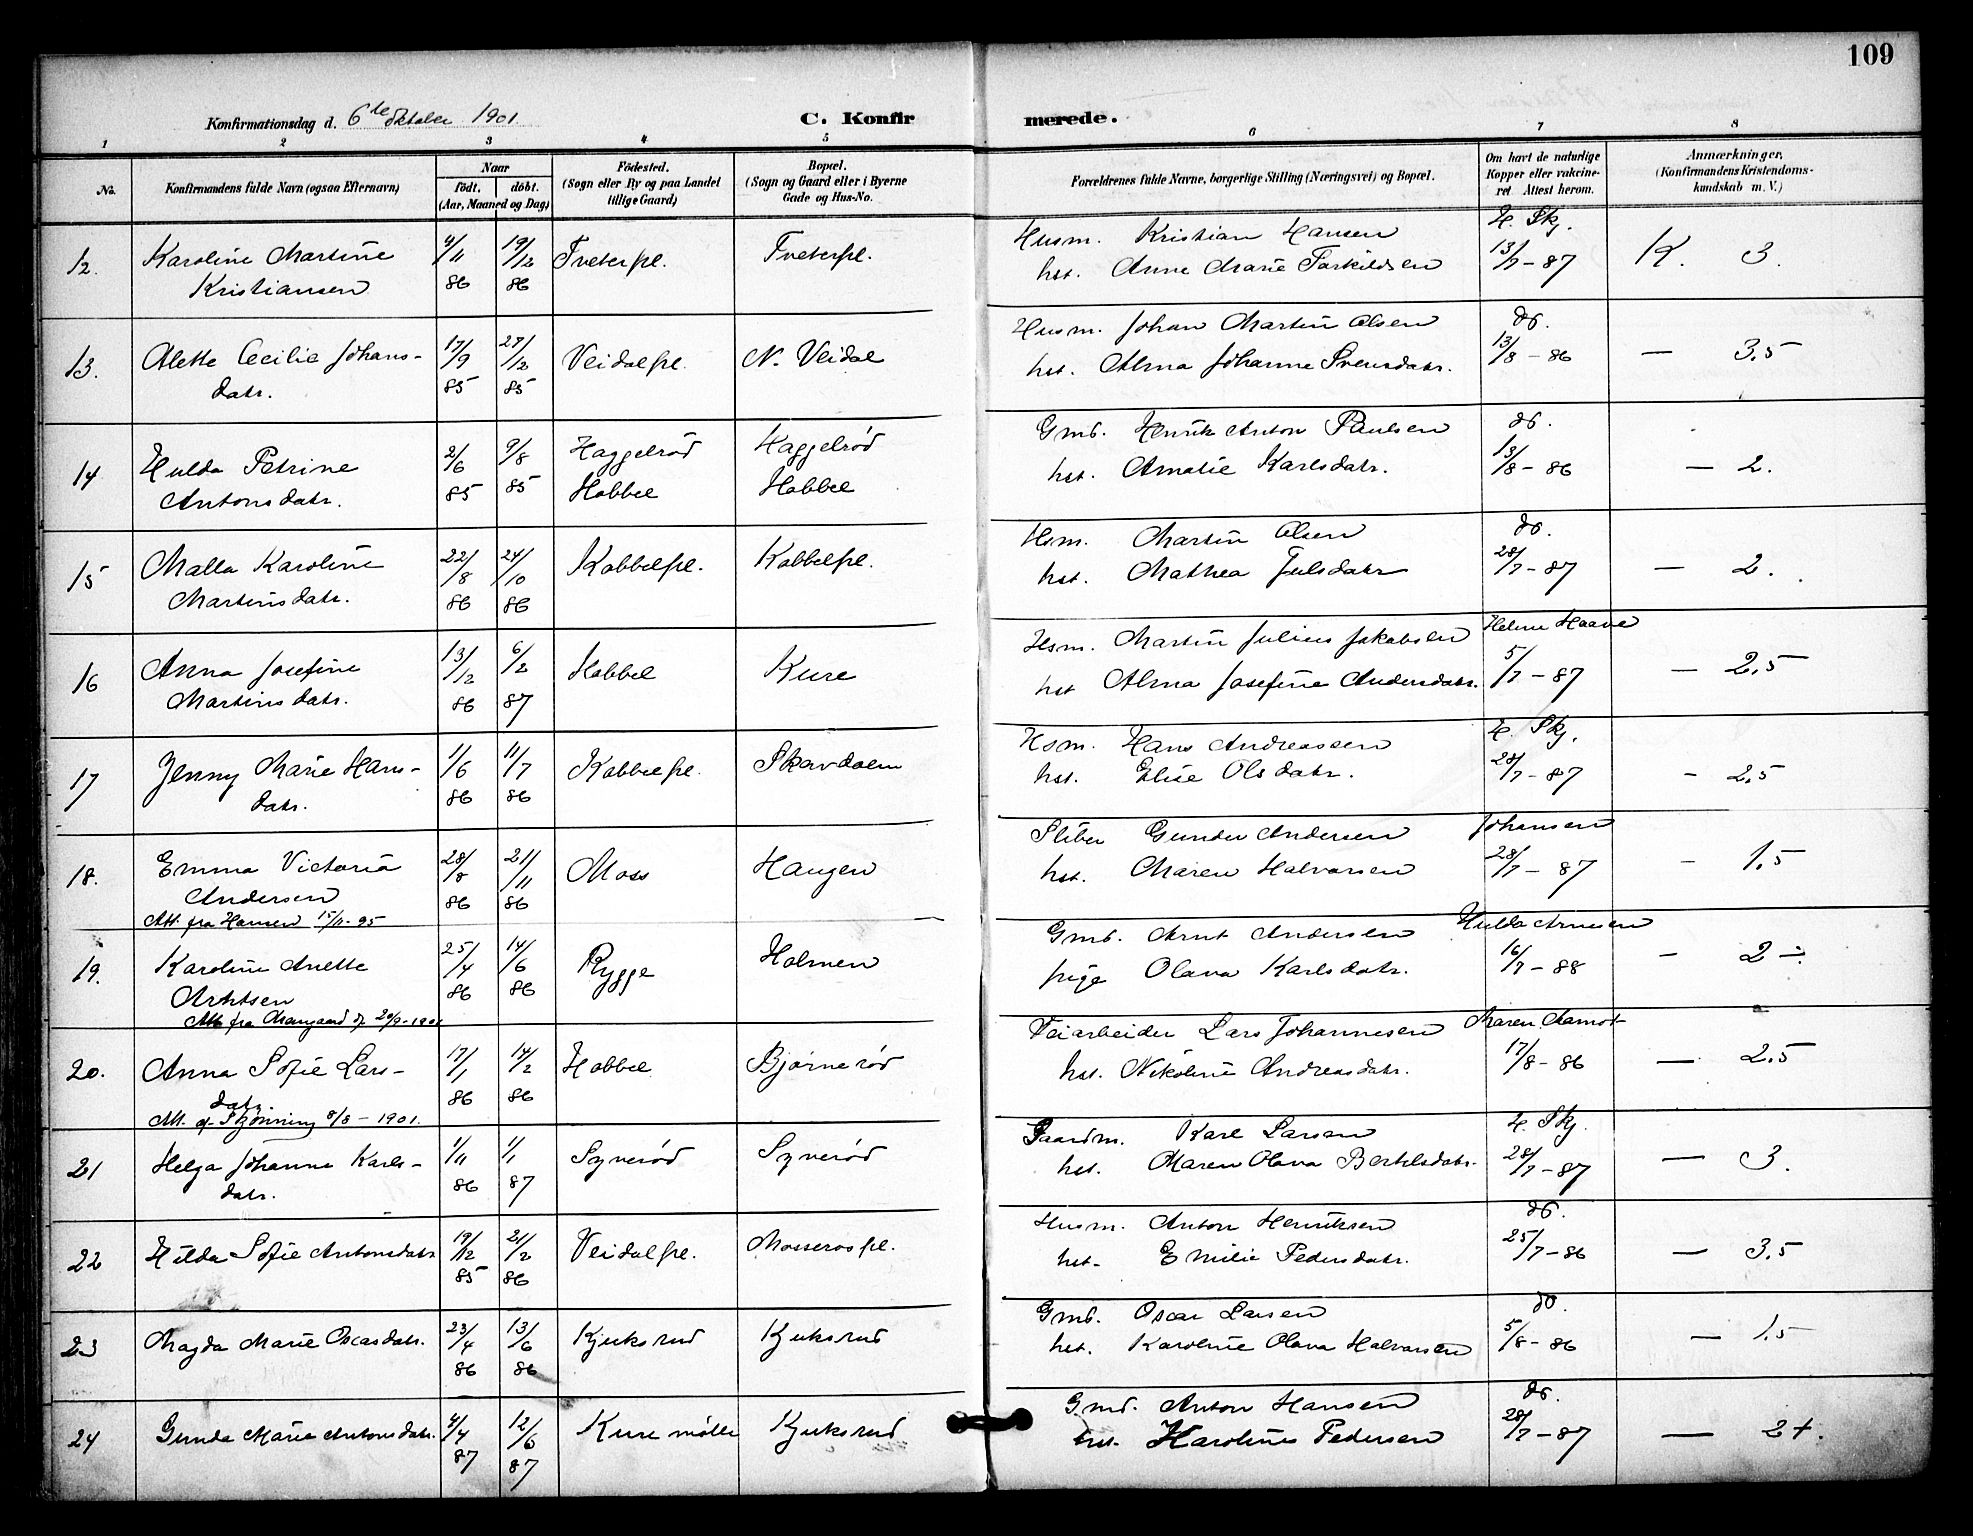 109
Konfirmationsdag d. 6te Oktober 1901.
C. Konfirmerede.
1 2 3 4 5 6 7 8
No.
Konfirmandens fulde Navn (ogsaa Efternavn)
Naar
født. døbt.
(Aar, Maaned og Dag)
Fødested.
(Sogn eller By og paa Landet
tillige Gaard)
Bopæl.
(Sogn og Gaard eller i Byerne
Gade og Hus-No.
Forældrenes fulde Navne, borgerlige Stilling (Næringsvei) og Bopæl.
Om havt de naturlige
Kopper eller vakcine-
ret Attest herom.
Anmærkninger,
(Konfirmandens Kristendoms-
kundskab m. V.)
12. Karoline Martine 4/11 19/12 Tveterpl. Tveterpl. Husm. Kristian Hansen H. Skj.
Kristiansen 86 86 hst. Anne Marie Torkildsen 13/7-87 K. 3.
13. Alette Cecilie Johans- 17/9 27/12 Veidalpl. N. Veidal Husm. Johan Martin Olsen do.
datr. 85 85 hst. Alma Johanne Svensdatr. 13/8-86 — 3.5
14 Hulda Petrine 2/6 9/8 Haggelrød Haggelrød Gmd. Henrik Anton Paulsen do.
Antonsdatr. 85 85 Hobbel Hobbel hst. Amalie Karlsdatr. 13/8-86 — 2.
15 Malla Karoline 22/8 24/10 Kobbelpl. Kobbelpl. Hsm. Martin Olsen do.
Martinsdatr. 86 86 hst. Mathea Julsdatr 28/7-87 — 2.
16 Anna Josefine 13/12 6/2 Hobbel Kure Hsm. Martin Julius Jakobsen Helene Haave
Martinsdatr. 86 87 hst Alma Josefine Andersdatr. 5/7-87 — 2.5
17 Jenny Marie Hans- 1/6 11/7 Kobbelpl. Skavdalen Hsm. Hans Andreassen H. Skj.
datr. 86 86 hst. Elise Olsdatr. 28/7-87 - 2.5
18. Emma Victoria 28/8 21/11 Moss Haugen Sliber Gunder Andersen Johansen
Andersen 86 86 hst. Maren Halvorsen 28/7-87 - 1.5
Att. fra Hansen 15/11-95
19. Karoline Anette 25/4 14/6 Rygge Holmen Gmd. Arnt Andersen Hulda Arnesen
Arntsen 86 86 pige Olava Karlsdatr. 16/7-88 - 2 ÷
Att. fra 20/9-1901
20. Anna Sofie Lars- 17/1 14/2 Hobbel Bjørnerød Veiarbeider Lars Johannesen Maren Aamot
datr. 86 86 hst. Nikoline Andreasdatr. 17/8-86 — 2.5
Att. af Skjønning 8/8-1901.
21 Helga Johanne Karls- 1/11 1/1 Synerød Synerød Gaardm. Karl Larsen H. Skj.
datr. 86 87 hst. Maren Olava Bertelsdatr. 28/7-87 — 3.
22 Hilda Sofie Antonsdatr 19/12 21/2 Veidalpl. Mosserospl. Husm. Anton Henriksen do.
85 86 hst- Emilie Pedersdatr. 25/7-86 — 3.5
23 Magda Marie Oscarsdatr. 23/4 13/6 Kjuksrud Kjuksrud Gmd. Oscar Larsen do.
86 86 hst. Karoline Olava Halvorsen 5/8-86 — 1.5
24 Gunda Marie Antonsdatr. 4/4 12/6 Kure mølle Kjuksrud Gmd. Anton Hansen do.
87 87 hst. Karoline Pedersen 28/7-87 — 2+.